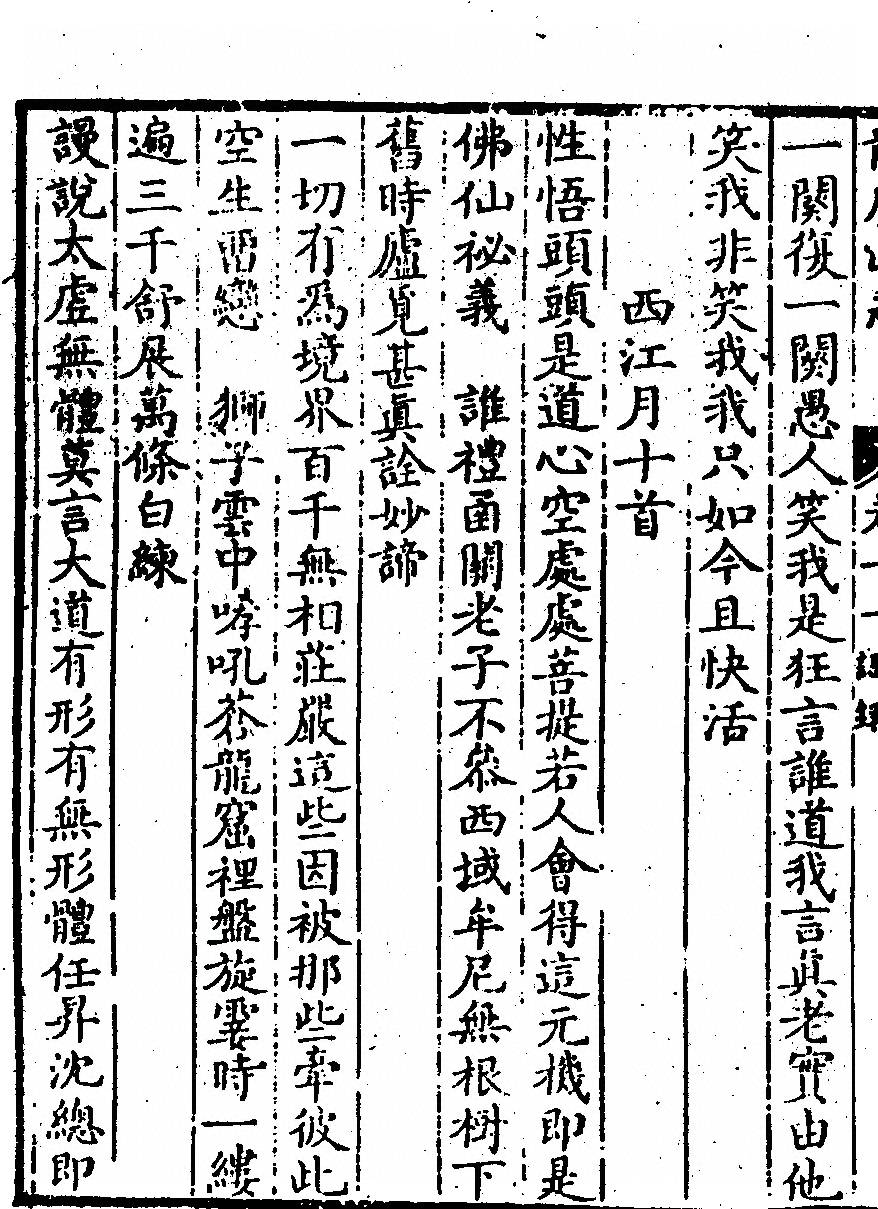 一闋復一闋愚人笑我是狂言誰道我言眞老實由他
笑我非笑我我只如今且快活
西江月十首
性悟頭頭是道心空處處菩提若人會得這元機即是
佛仙祕義　誰禮函關老子不叅西域牟尼無根樹下
舊時廬覓甚眞詮妙諦
一切有爲境界百千無相莊嚴這些因被那些牽彼此
空生留戀　獅子雲中哮吼蒼龍窟裡盤旋霎時一縷
遍三千舒展萬條白練
謾說太虛無體莫言大道有形有無形體任昇沈總即